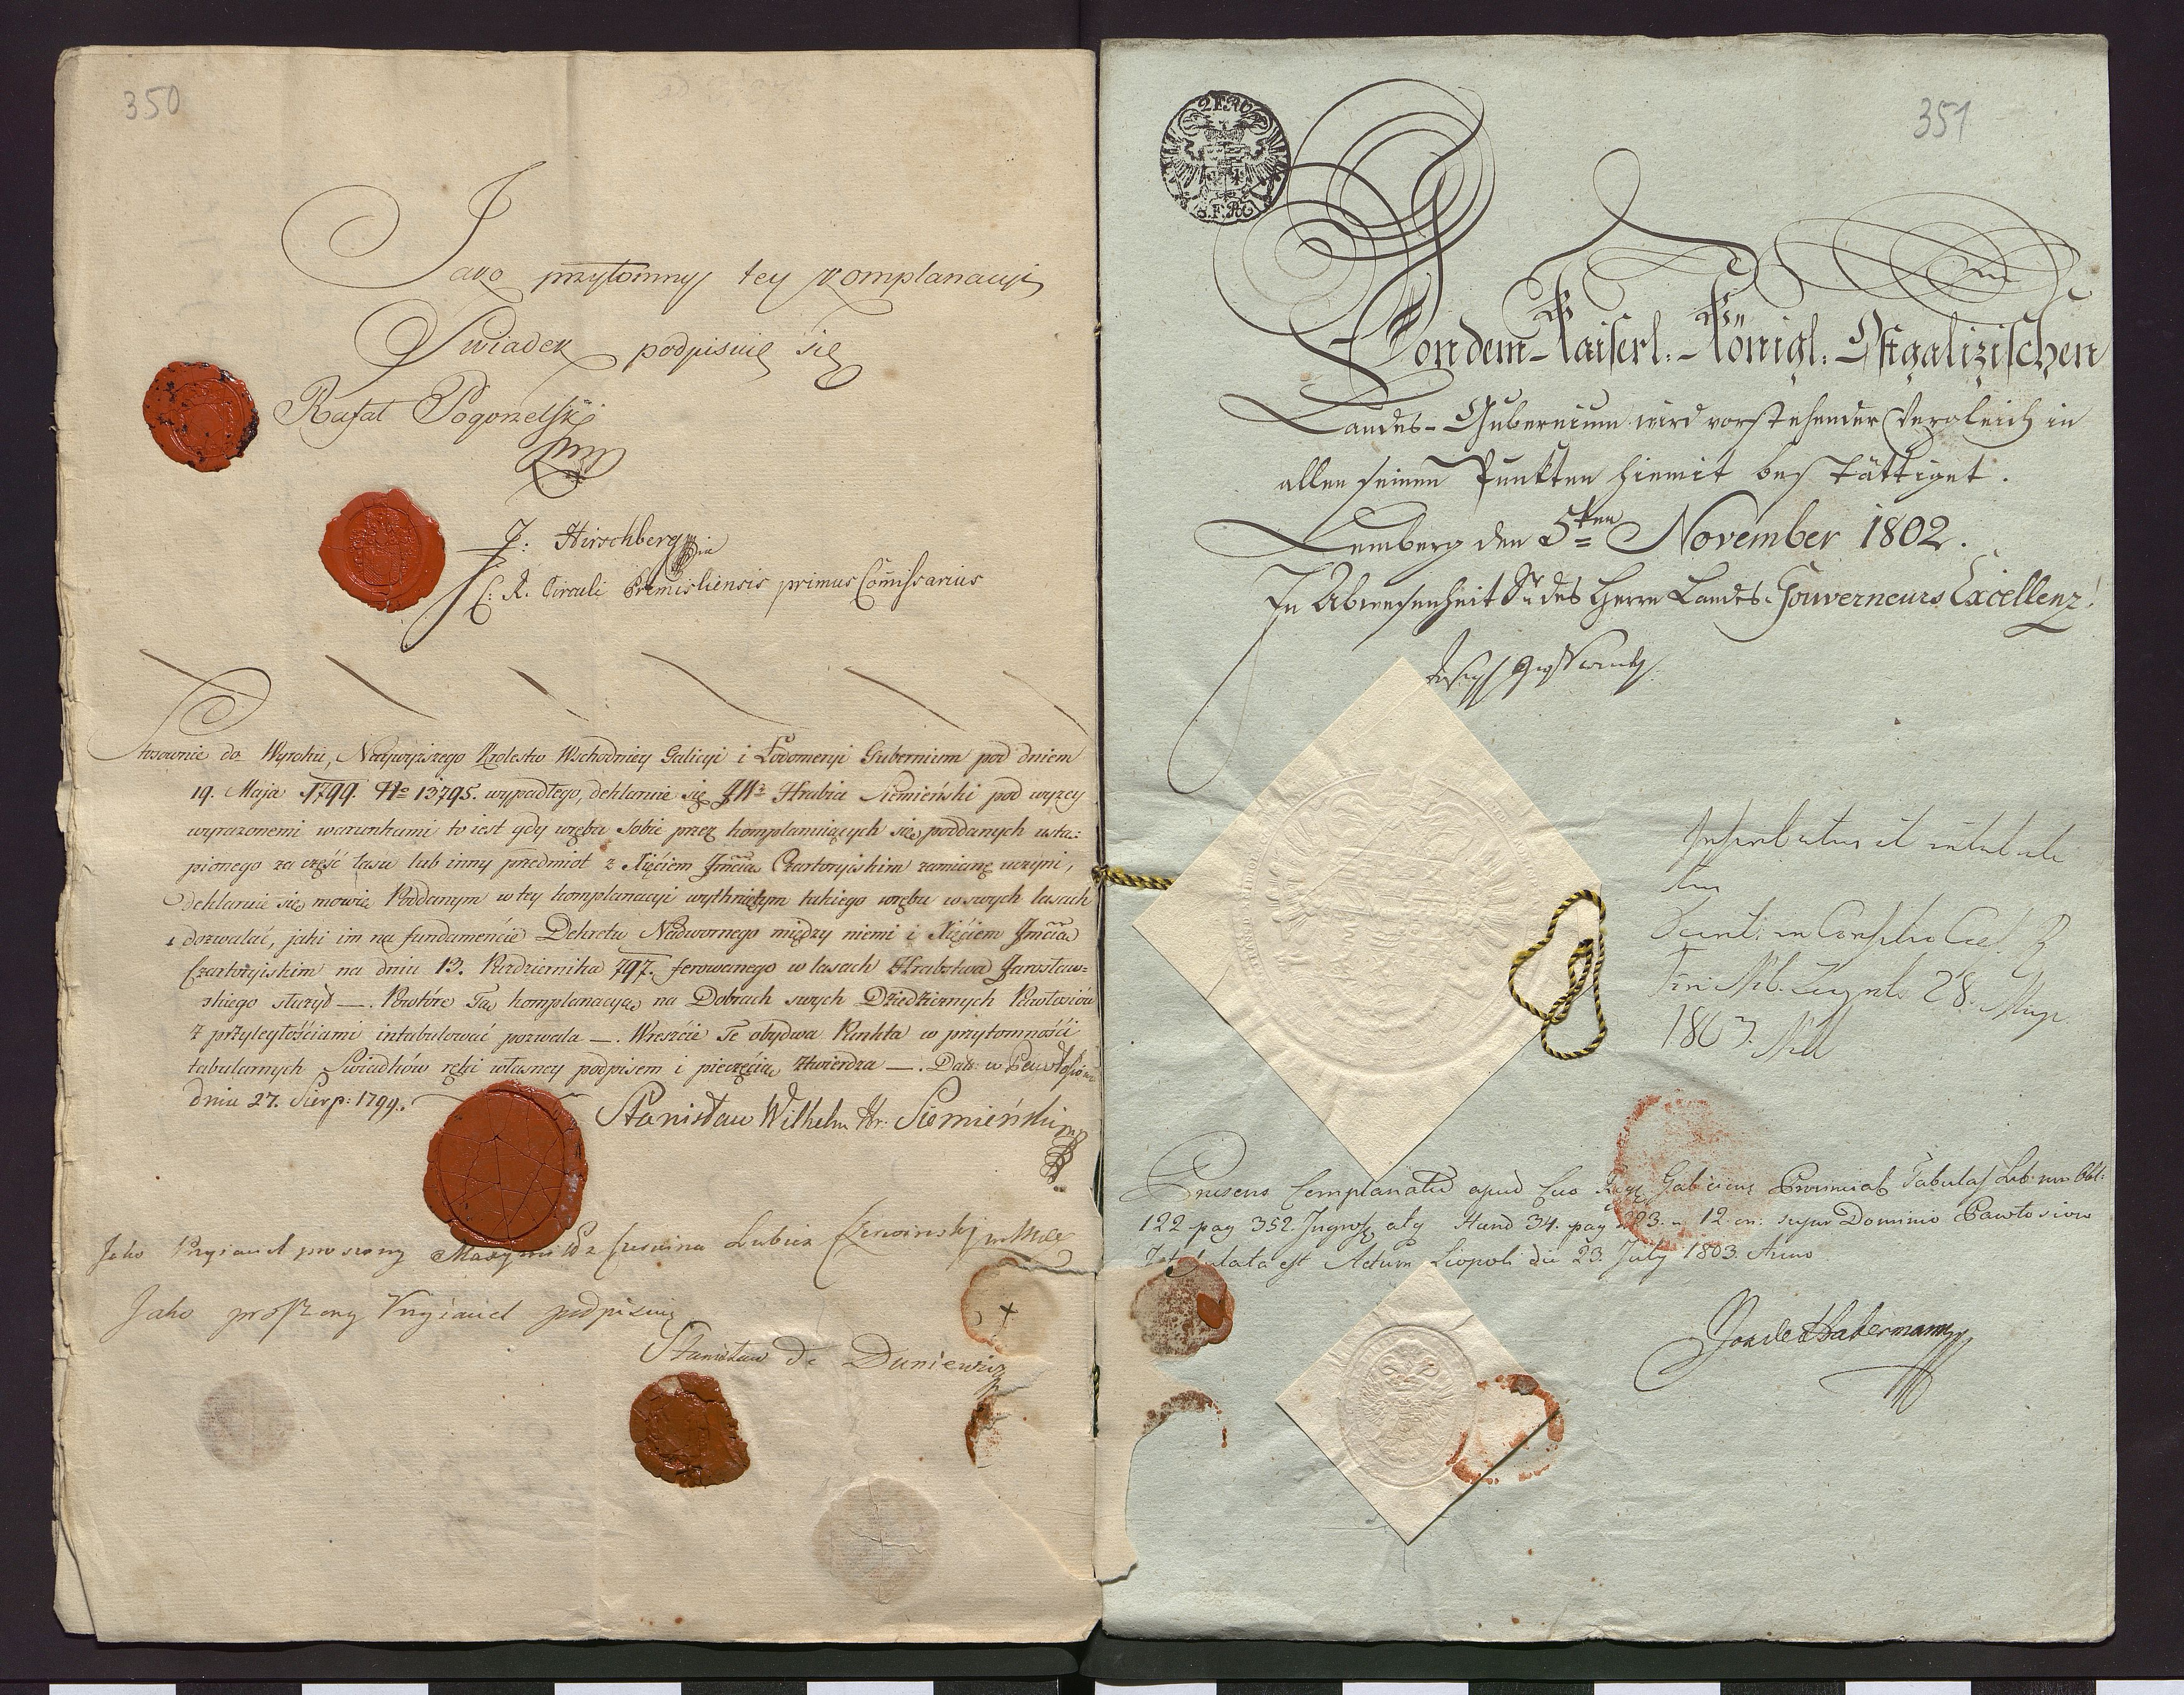 350
Jako przytomny tey komplanacyi
Swiadek podpisuię się
Rafał Pogorzelski
mp
J: Hirschberg
C: R. Circuli Premisliensis primus Com̄issarius
Stosownie do Wyroku, Naywyższego Krolestw Wschodniey Galicyi i Lodomeryi Gubernium pod dniem
19. Maja 1799. No 13795. wypadłego, deklaruie się JW: Hrabia Siemieński pod wyżey
wyrazonemi warunkami to iest gdy wrębu sobie przez komplanuiących się poddanych ustą-
pionego za część lasu lub inny przedmiot z Xięciem Jmcią Czartoryiskim zamianę uczyni,
deklaruie się mowię Poddanym w tey komplanacyi wytkniętym takiego wrębu w swych lasach
dozwalać, jaki im na fundamencie Dekretu Nadwornego między niemi i Xięciem Jmcią
Czartoryiskim na dniu 13. Pazdziernika 797. ferowanego w lasach Hrabstwa Jarosław-
skiego służył —. Powtóre Tą komplanacyą na Dobrach swych Dziedzicznych Pawłosiów
z przyległościami intabulować pozwala —. Wreszcie Te obydwa Punkta w przytomności
tabularnych Swiadków ręki własney podpisem i pieczęcią ztwierdza —. Dat: w Pawłosiowie
dniu 27. Sierp: 1799.
Stanisław Wilhelm Hr. Siemieński mp
Jako Przyiaciel proszony Lubicz Czerwinski
Jako proszony Przyiaciel podpisuię
Stanisław de Duniewicz
351
2 F. R.
Von dem Kaiserl: Königl: Ostgalizischen
Landes-Gubernium wird vorstehender Vergleich in
allen seinen Punkten hiemit bestättiget.
Lemberg den 5ten November 1802.
In Abwesenheit Sr des Herrn Landes-Gouverneurs Excellenz.
28.
1803.
Praesens Complanatio apud Caes Reg Galiciens Provincial Tabulas Lib:
122 pag 352 Ingross atq Haud 34. pag 293. n 12. on: super Dominio Pawłosiow
Intabulata est Actum Leopoli die 23. July 1803. Anno
Habermann